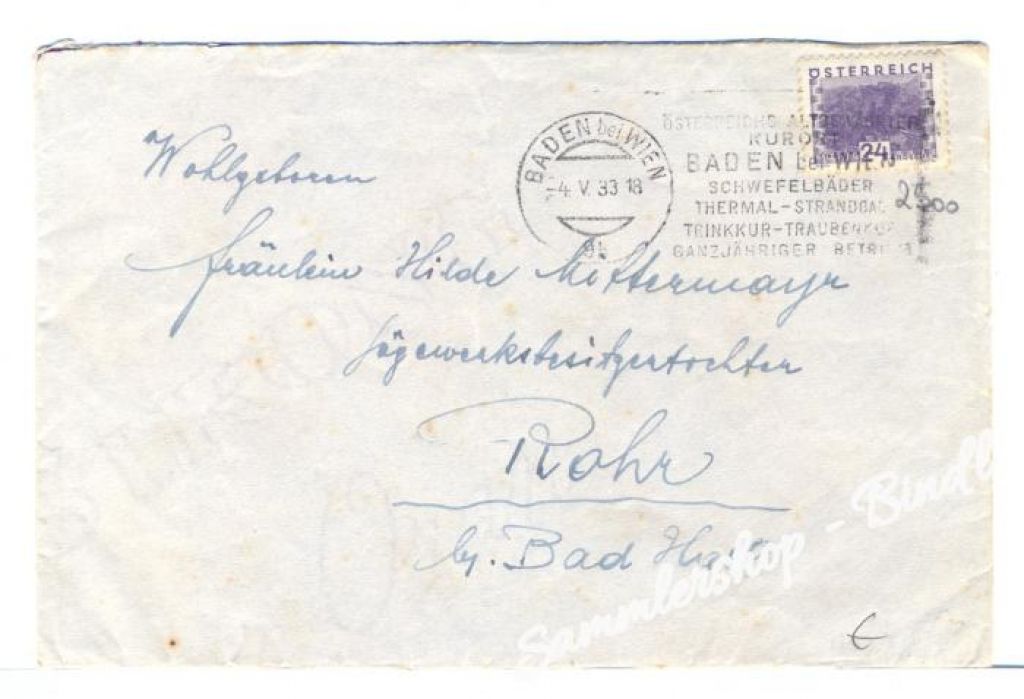 ÖSTERREICH
24
BADEN bei WIEN
4. V. 33 18
ÖSTERREICHS
KURORT
BADEN bei WIEN
SCHWEFELBÄDER
THERMAL-STRANDBAD
TRINKKUR-TRAUBENKUR
GANZJÄHRIGER BETRIEB
Wohlgeboren
Fräulein Hilde Mittermayr
Sägewerksbesitzertochter
Rohr
b. Bad Hall
Sammlershop - Bindl